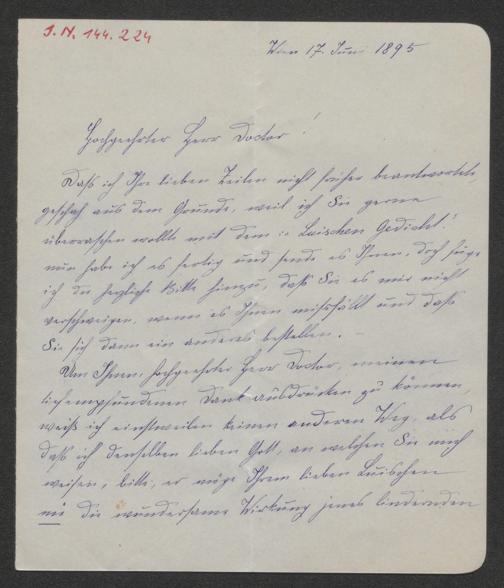 J. N. 144.224
Wien 17. Juni 1895
Hochgeehrter Herr Doctor!
Daß ich Ihre lieben Zeilen nicht früher beantwortete,
geschah aus dem Grunde, weil ich Sie gerne
überraschen wollte mit dem „Luischen Gedicht.“
nun habe ich es fertig und sende es Ihnen, doch füge
ich die herzliche Bitte hinzu, daß Sie es mir nicht
verschweigen, wenn es Ihnen mißfällt und daß
Sie sich dann ein anderes bestellen. –
Um Ihnen, hochgeehrter Herr Doctor, meinen
tiefempfundenen Dank ausdrücken zu können,
weiß ich einstweilen keinen anderen Weg, als
daß ich denselben lieben Gott, an welchen Sie mich
weisen, bitte, er möge Ihrem lieben Luischen
nie die wundersame Wirkung jenes lindernden